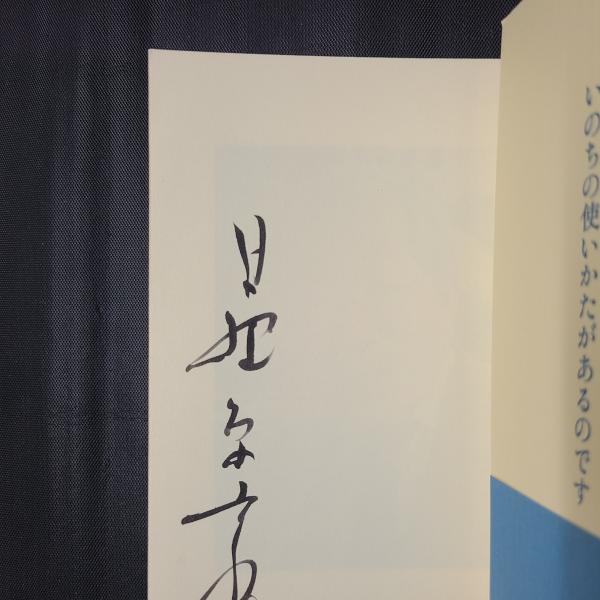 いのちの使いかたがあるのです
日野原重